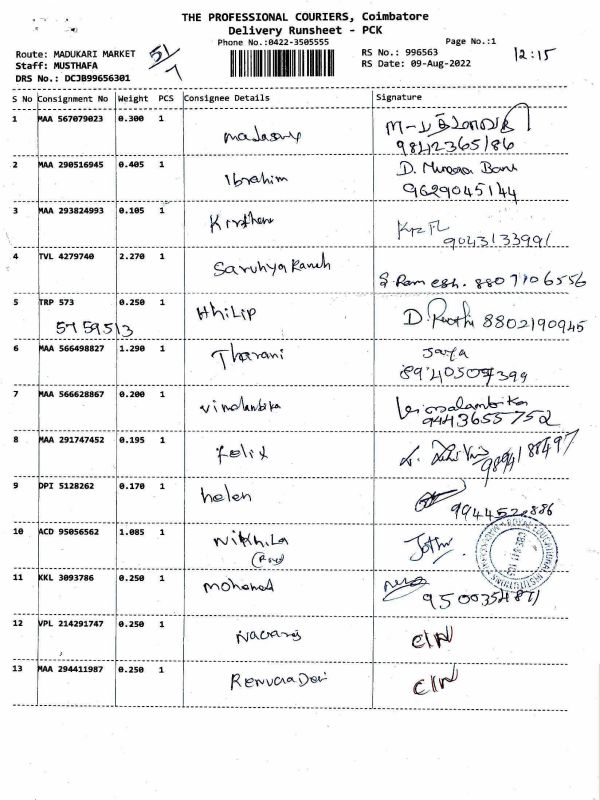 THE PROFESSIONAL COURIERS, Coimbatore
Delivery Runsheet - PCK
Phone No.:0422-3505555
Page No.:1
Route: MADUKARI MARKET
51/7
RS No.: 996563
12:15
Staff: MUSTHAFA
RS Date: 09-Aug-2022
DRS No.: DCJB99656301
S No Consignment No Weight PCS Consignee Details Signature
1 MAA 567079023 0.300 1
9842365186
2 MAA 290516945 0.405 1 Ibrahim D. Banu
9629045144
3 MAA 293824993 0.105 1
9043133991
4 TVL 4279740 2.270 1 S. Ramesh. 8807106556
5 TRP 573 0.250 1 Hhilip D. 8802190945
5759513
6 MAA 566498827 1.290 1 Tharani
7 MAA 566628867 0.200 1
9443655752
8 MAA 291747452 0.195 1 Felix
9 DPI 5128262 0.170 1 helen
10 ACD 95056562 1.085 1 Nikhila
11 KKL 3093786 0.250 1 mohamed
12 VPL 214291747 0.250 1 Navaraj
13 MAA 294411987 0.250 1